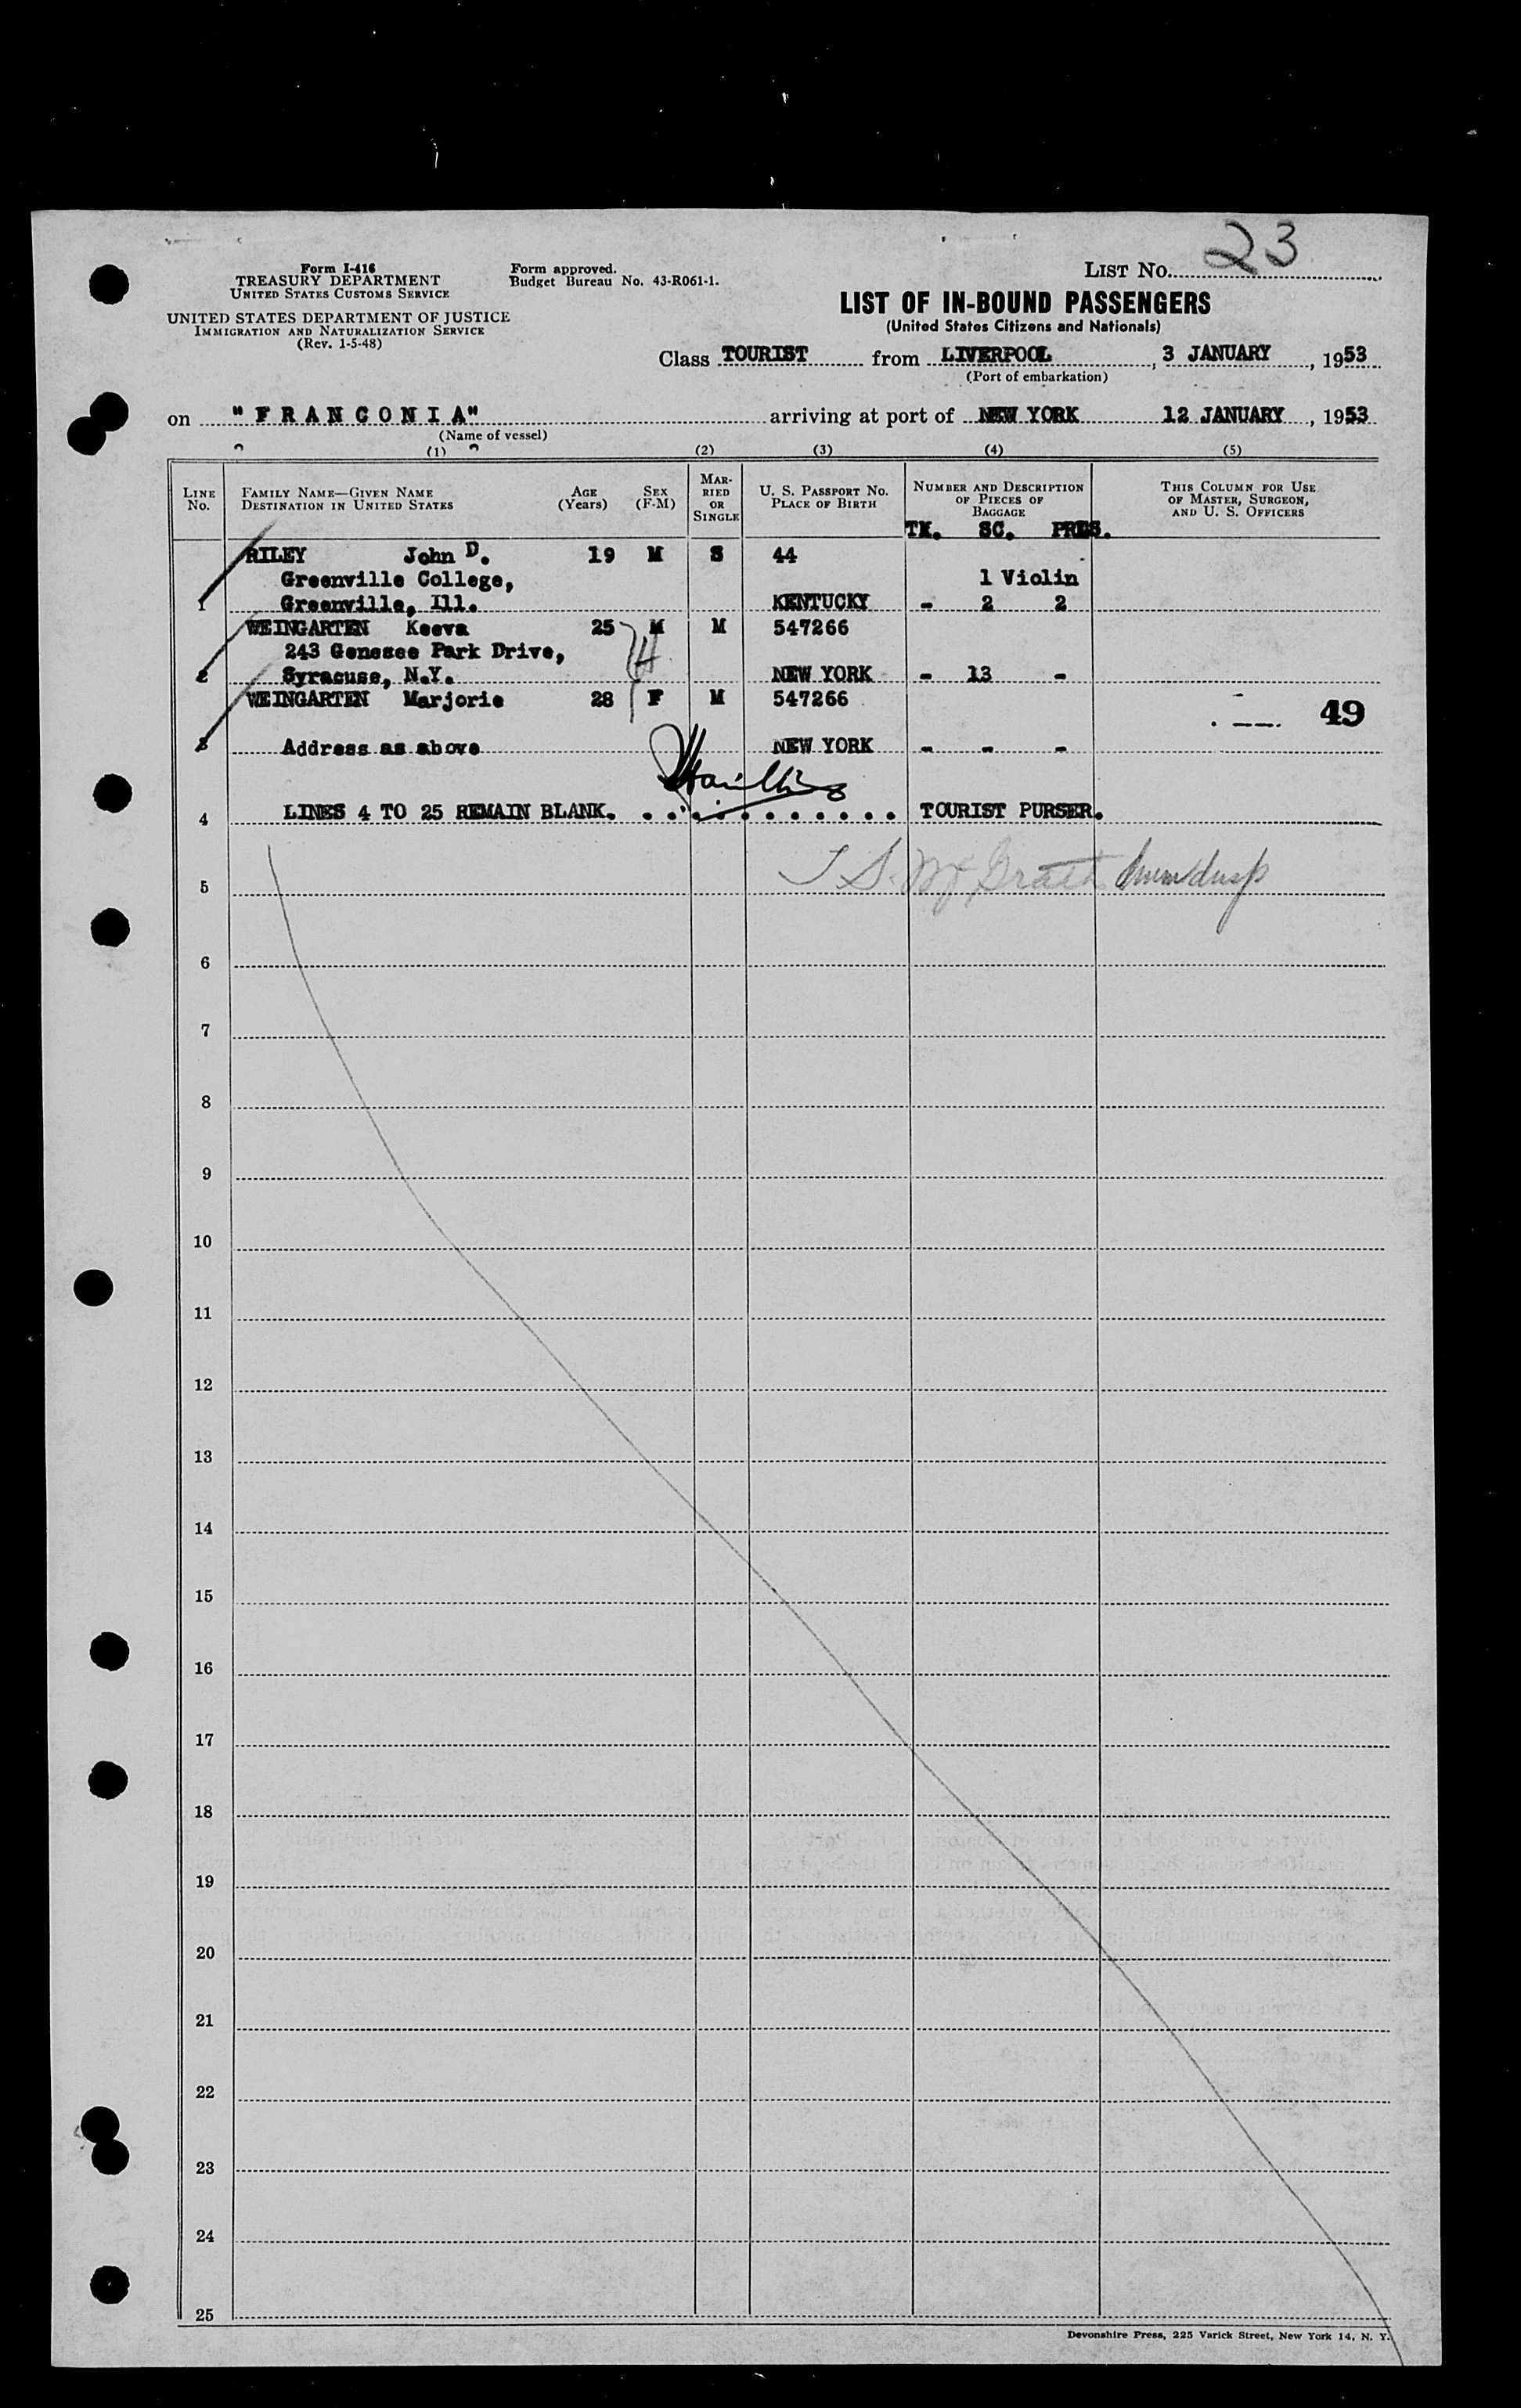 23
Form I-416
TREASURY DEPARTMENT
UNITED STATES CUSTOMS SERVICE
UNITED STATES DEPARTMENT OF JUSTICE
IMMIGRATION AND NATURALIZATION SERVICE
(Rev. 1-5-48)
Form approved.
Budget Bureau No. 43-R061-1.
LIST NO.
LIST OF IN-BOUND PASSENGERS
(United States Citizens and Nationals)
Class TOURIST from LIVERPOOL, 3 JANUARY, 1953
(Port of embarkation)
on "FRANCONIA" arriving at port of NEW YORK 12 JANUARY, 1953
(Name of vessel)
(1) (2) (3) (4) (5)
LINE NO. FAMILY NAME—GIVEN NAME DESTINATION IN UNITED STATES AGE (Years) SEX (F-M) MARRIED OR SINGLE U. S. PASSPORT NO. PLACE OF BIRTH NUMBER AND DESCRIPTION OF PIECES OF BAGGAGE THIS COLUMN FOR USE OF MASTER, SURGEON, AND U. S. OFFICERS
TK. SC. PRES.
RILEY John D. 19 M S 44
Greenville College, 1 Violin
1 Greenville, Ill. KENTUCKY - 2 2
WEINGARTEN Keeva 25 M M 547266
243 Genesee Park Drive,
2 Syracuse, N.Y. NEW YORK - 13 -
WEINGARTEN Marjorie 28 F M 547266
49
3 Address as above NEW YORK - - -
4 LINES 4 TO 25 REMAIN BLANK. . . . . . . . . . . . TOURIST PURSER.
5 T S. McGrath
6
7
8
9
10
11
12
13
14
15
16
17
18
19
20
21
22
23
24
25
Devonshire Press, 225 Varick Street, New York 14, N. Y.